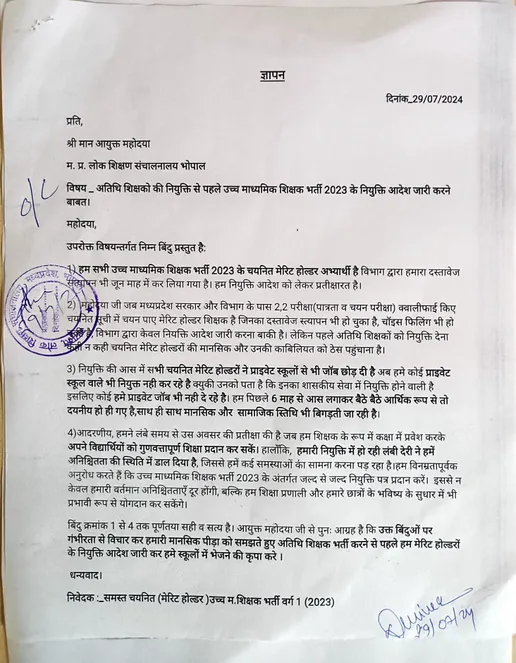 ज्ञापन
दिनांक_29/07/2024
प्रति,
श्री मान आयुक्त महोदया
म. प्र. लोक शिक्षण संचालनालय भोपाल
O/C
विषय _ अतिथि शिक्षको की नियुक्ति से पहले उच्च माध्यमिक शिक्षक भर्ती 2023 के नियुक्ति आदेश जारी करने
बाबत।
महोदया,
उपरोक्त विषयन्तर्गत निम्न बिंदु प्रस्तुत है:
1) हम सभी उच्च माध्यमिक शिक्षक भर्ती 2023 के चयनित मेरिट होल्डर अभ्यार्थी है विभाग द्वारा हमारा दस्तावेज
सत्यापन भी जून माह में कर लिया गया है। हम नियुक्ति आदेश को लेकर प्रतीक्षारत है।
2) महोदया जी जब मध्यप्रदेश सरकार और विभाग के पास 2,2 परीक्षा(पात्रता व चयन परीक्षा) क्वालीफाई किए
चयनित सूची में चयन पाए मेरिट होल्डर शिक्षक है जिनका दस्तावेज स्त्यापन भी हो चुका है, चॉइस फिलिंग भी हो
है, विभाग द्वारा केवल नियक्ति आदेश जारी करना बाकी है। लेकिन पहले अतिथि शिक्षकों को नियुक्ति देना
कही न कही चयनित मेरिट होल्डरों की मानसिक और उनकी काबिलियत को ठेस पहुंचाना है।
3) नियुक्ति की आस में सभी चयनित मेरिट होल्डरों ने प्राइवेट स्कूलों से भी जॉब छोड़ दी है अब हमे कोई प्राइवेट
स्कूल वाले भी नियुक्त नही कर रहे है क्युकी उनको पता है कि इनका शासकीय सेवा में नियुक्ति होने वाली है
इसलिए कोई हमे प्राइवेट जॉब भी नही दे रहे है। हम पिछले 6 माह से आस लगाकर बैठे बैठे आर्थिक रूप से तो
दयनीय हो ही गए है,साथ ही साथ मानसिक और सामाजिक स्तिथि भी बिगड़ती जा रही है।
4)आदरणीय, हमने लंबे समय से उस अवसर की प्रतीक्षा की है जब हम शिक्षक के रूप में कक्षा में प्रवेश करके
अपने विद्यार्थियों को गुणवत्तापूर्ण शिक्षा प्रदान कर सकें। हालाँकि, हमारी नियुक्ति में हो रही लंबी देरी ने हमें
अनिश्चितता की स्थिति में डाल दिया है, जिससे हमें कई समस्याओं का सामना करना पड़ रहा है।हम विनम्रतापूर्वक
अनुरोध करते हैं कि उच्च माध्यमिक शिक्षक भर्ती 2023 के अंतर्गत जल्द से जल्द नियुक्ति पत्र प्रदान करें। इससे न
केवल हमारी वर्तमान अनिश्चितताएँ दूर होंगी, बल्कि हम शिक्षा प्रणाली और हमारे छात्रों के भविष्य के सुधार में भी
प्रभावी रूप से योगदान कर सकेंगे।
बिंदु क्रमांक 1 से 4 तक पूर्णतया सही व सत्य है। आयुक्त महोदया जी से पुनः आग्रह है कि उक्त बिंदुओं पर
गंभीरता से विचार कर हमारी मानसिक पीड़ा को समझते हुए अतिथि शिक्षक भर्ती करने से पहले हम मेरिट होल्डरों
के नियुक्ति आदेश जारी कर हमे स्कूलों में भेजने की कृपा करे ।
धन्यवाद।
निवेदक :_समस्त चयनित (मेरिट होल्डर )उच्च म.शिक्षक भर्ती वर्ग 1 (2023)
29/07/24